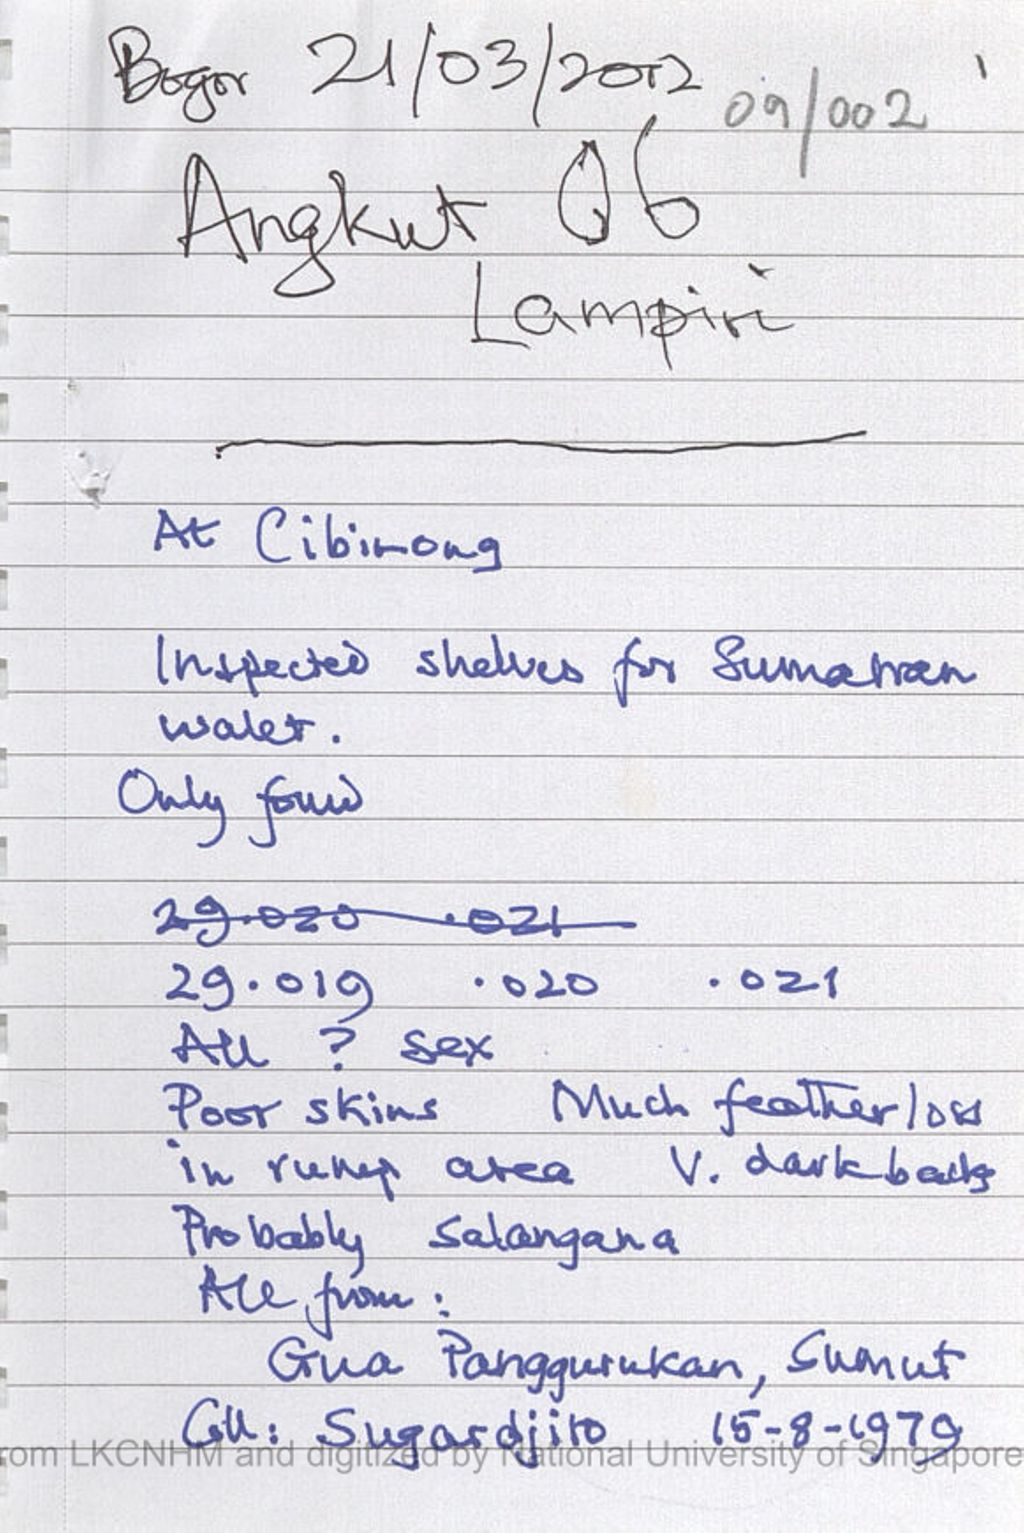 Bogor 21/03/2012
09/002
Angkut 06
Lampiri
At Cibinong
Inspected shelves for Sumatran
walet.
Only found
29.020 .021
29.019 .020 .021
All ? sex
Poor skins Much feather loss
in rump area V. dark backs
Probably salangana
All from:
Gua Panggurukan, Sumut
Coll: Sugardjito 15-8-1979
rom LKCNHM and digitized by National University of Singapore